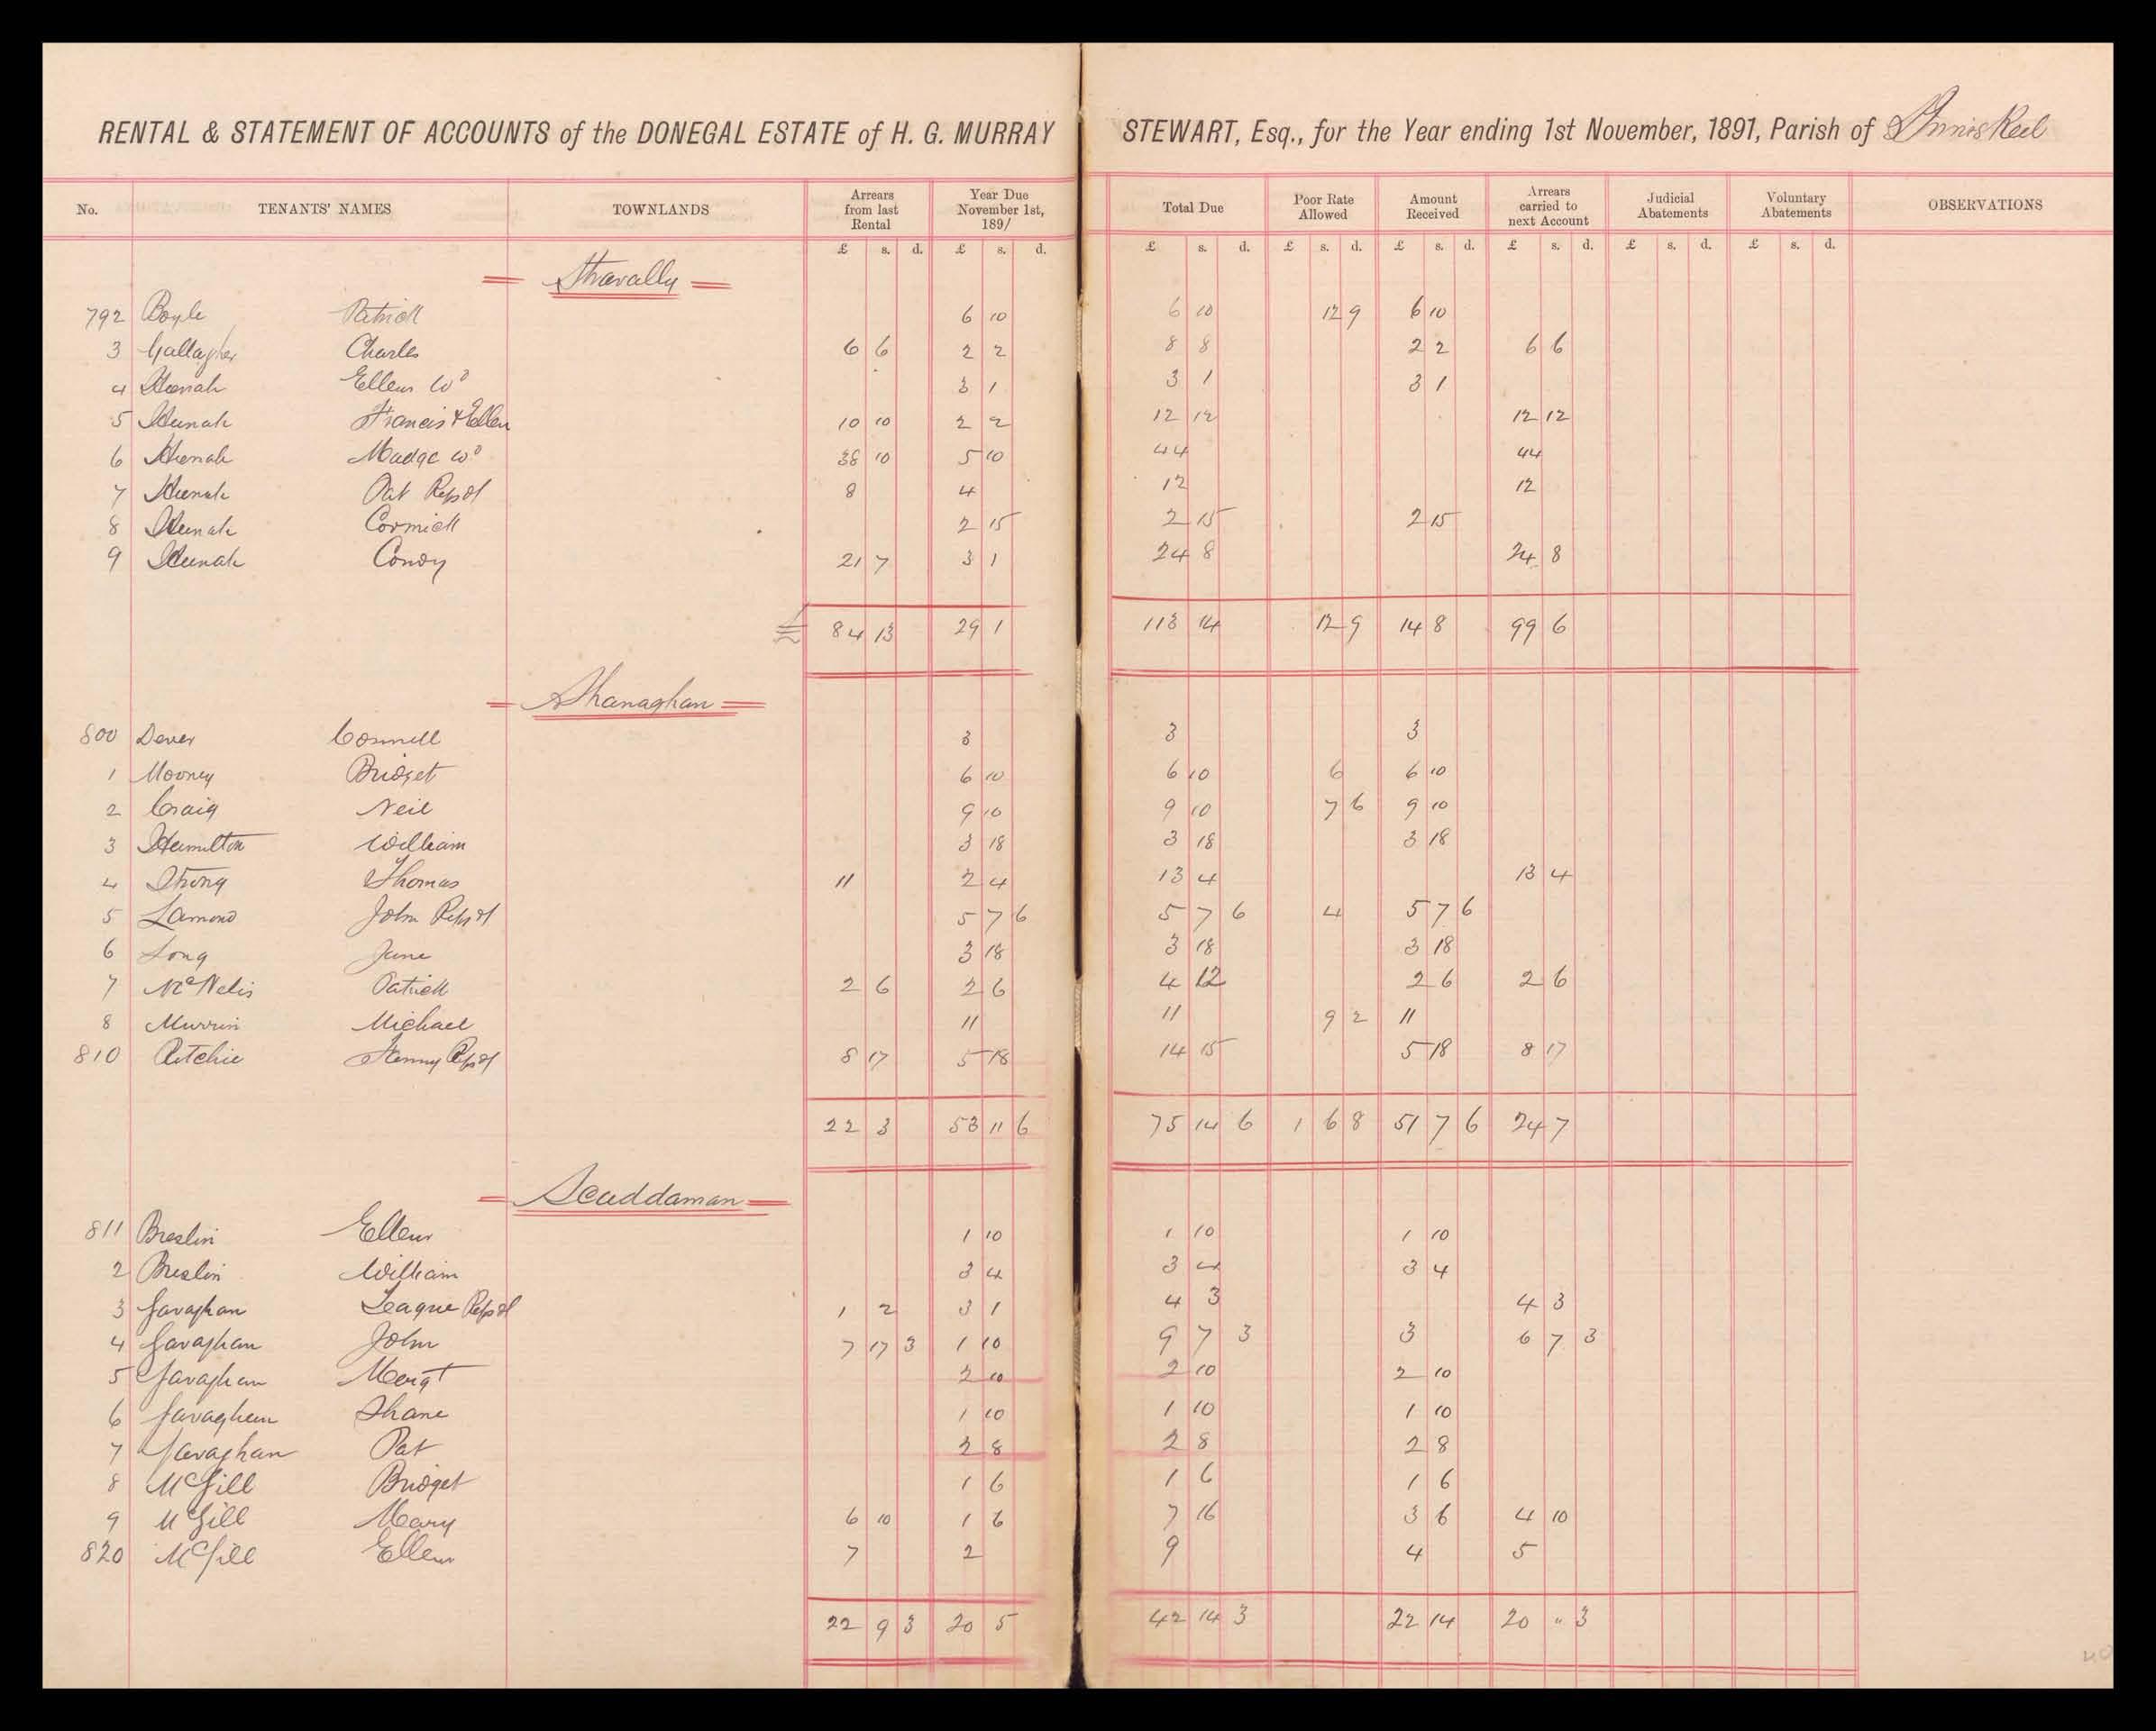 RENTAL & STATEMENT OF ACCOUNTS of the DONEGAL ESTATE of H. G. MURRAY STEWART, Esq., for the Year ending 1st November, 1891, Parish of Inniskeel
No. TENANTS' NAMES TOWNLANDS Arrears from last Rental Year Due November 1st, 1891 Total Due Poor Rate Allowed Amount Received Arrears carried to next Account Judicial Abatements Voluntary Abatements OBSERVATIONS
£ s. d. £ s. d. £ s. d. £ s. d. £ s. d. £ s. d. £ s. d. £ s. d.
Shavally
792 Boyle Patrick 6 10 6 10 12 9 6 10
3 Gallagher Charles 6 6 2 2 8 8 2 2 6 6
4 Heenah Ellen Wo 3 1 3 1 3 1
5 Heenah Francis & Ellen 10 10 2 2 12 12 12 12
6 Heenah Madge Wo 38 10 5 10 44 44
7 Heenah Pat Reps of 8 4 12 12
8 Heenah Cormick 2 15 2 15 2 15
9 Heenah Condy 21 7 3 1 24 8 24 8
84 13 29 1 113 14 12 9 14 8 99 6
Shanaghan
800 Dever Connell 3 3 3
1 Mooney Bridget 6 10 6 10 6 6 10
2 Craig Neil 9 10 9 10 7 6 9 10
3 Hamilton William 3 18 3 18 3 18
4 Strong Thomas 11 2 4 13 4 13 4
5 Lamond John Reps of 5 7 6 5 7 6 4 5 7 6
6 Long Jane 3 18 3 18 3 18
7 McNelis Patrick 2 6 2 6 4 12 2 6 2 6
8 Murrin Michael 11 11 9 2 11
810 Ritchie Henry Reps of 8 17 5 18 14 15 5 18 8 17
22 3 53 11 6 75 14 6 1 6 8 51 7 6 24 7
Scaddaman
811 Breslin Ellen 1 10 1 10 1 10
2 Breslin William 3 4 3 4 3 4
3 Gavaghan Teague Reps of 1 2 3 1 4 3 4 3
4 Gavaghan John 7 17 3 1 10 9 7 3 3 6 7 3
5 Gavaghan Margt 2 10 2 10 2 10
6 Gavaghan Shane 1 10 1 10 1 10
7 Gavaghan Pat 2 8 2 8 2 8
8 McGill Bridget 1 6 1 6 1 6
9 McGill Mary 6 10 1 6 7 16 3 6 4 10
820 McGill Ellen 7 2 9 4 5
22 9 3 20 5 42 14 3 22 14 20 " 3